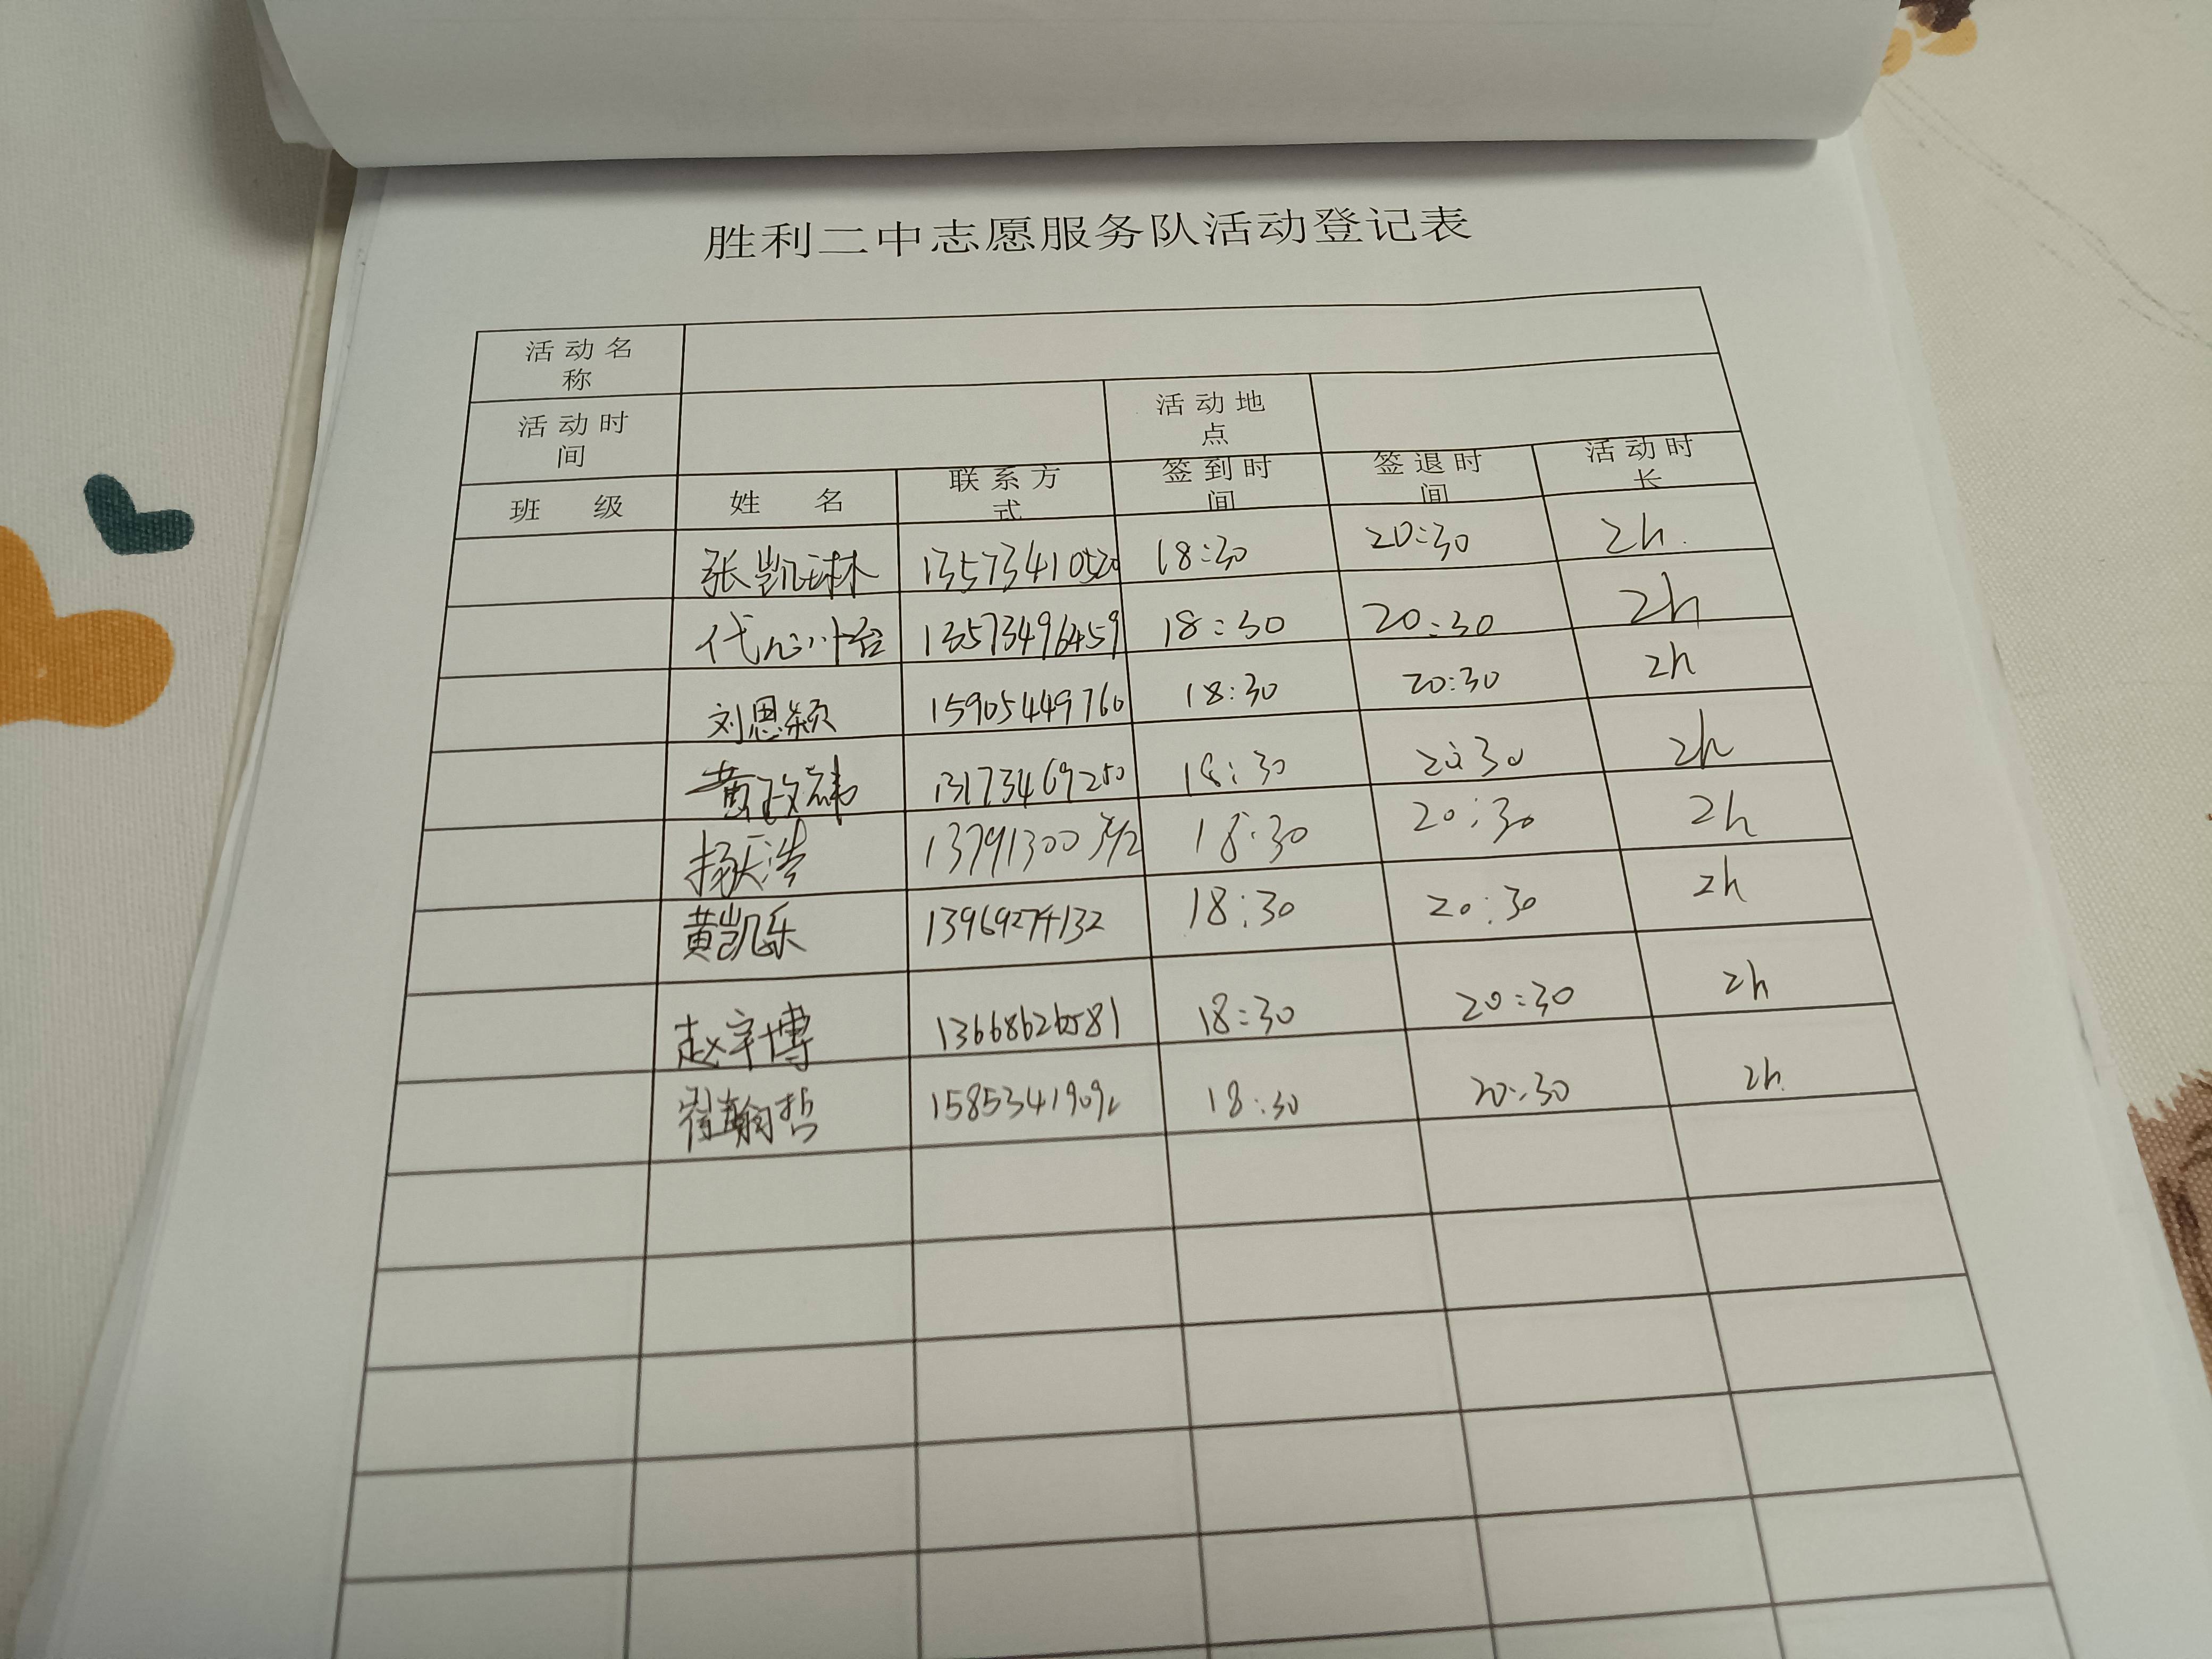 胜利二中志愿服务队活动登记表
活动名称
活动时间 活动地点
班 级 姓 名 联系方式 签到时间 签退时间 活动时长
张凯琳 13573410520 18:30 20:30 2h.
代心怡 13573496459 18:30 20:30 2h
刘思颖 15905449760 18:30 20:30 2h
黄政祎 13173469250 18:30 20:30 2h
杨天浩 18:30 20:30 2h
黄凯乐 13969274132 18:30 20:30 2h
赵宇博 18:30 20:30 2h
翰哲 18:30 20:30 2h.